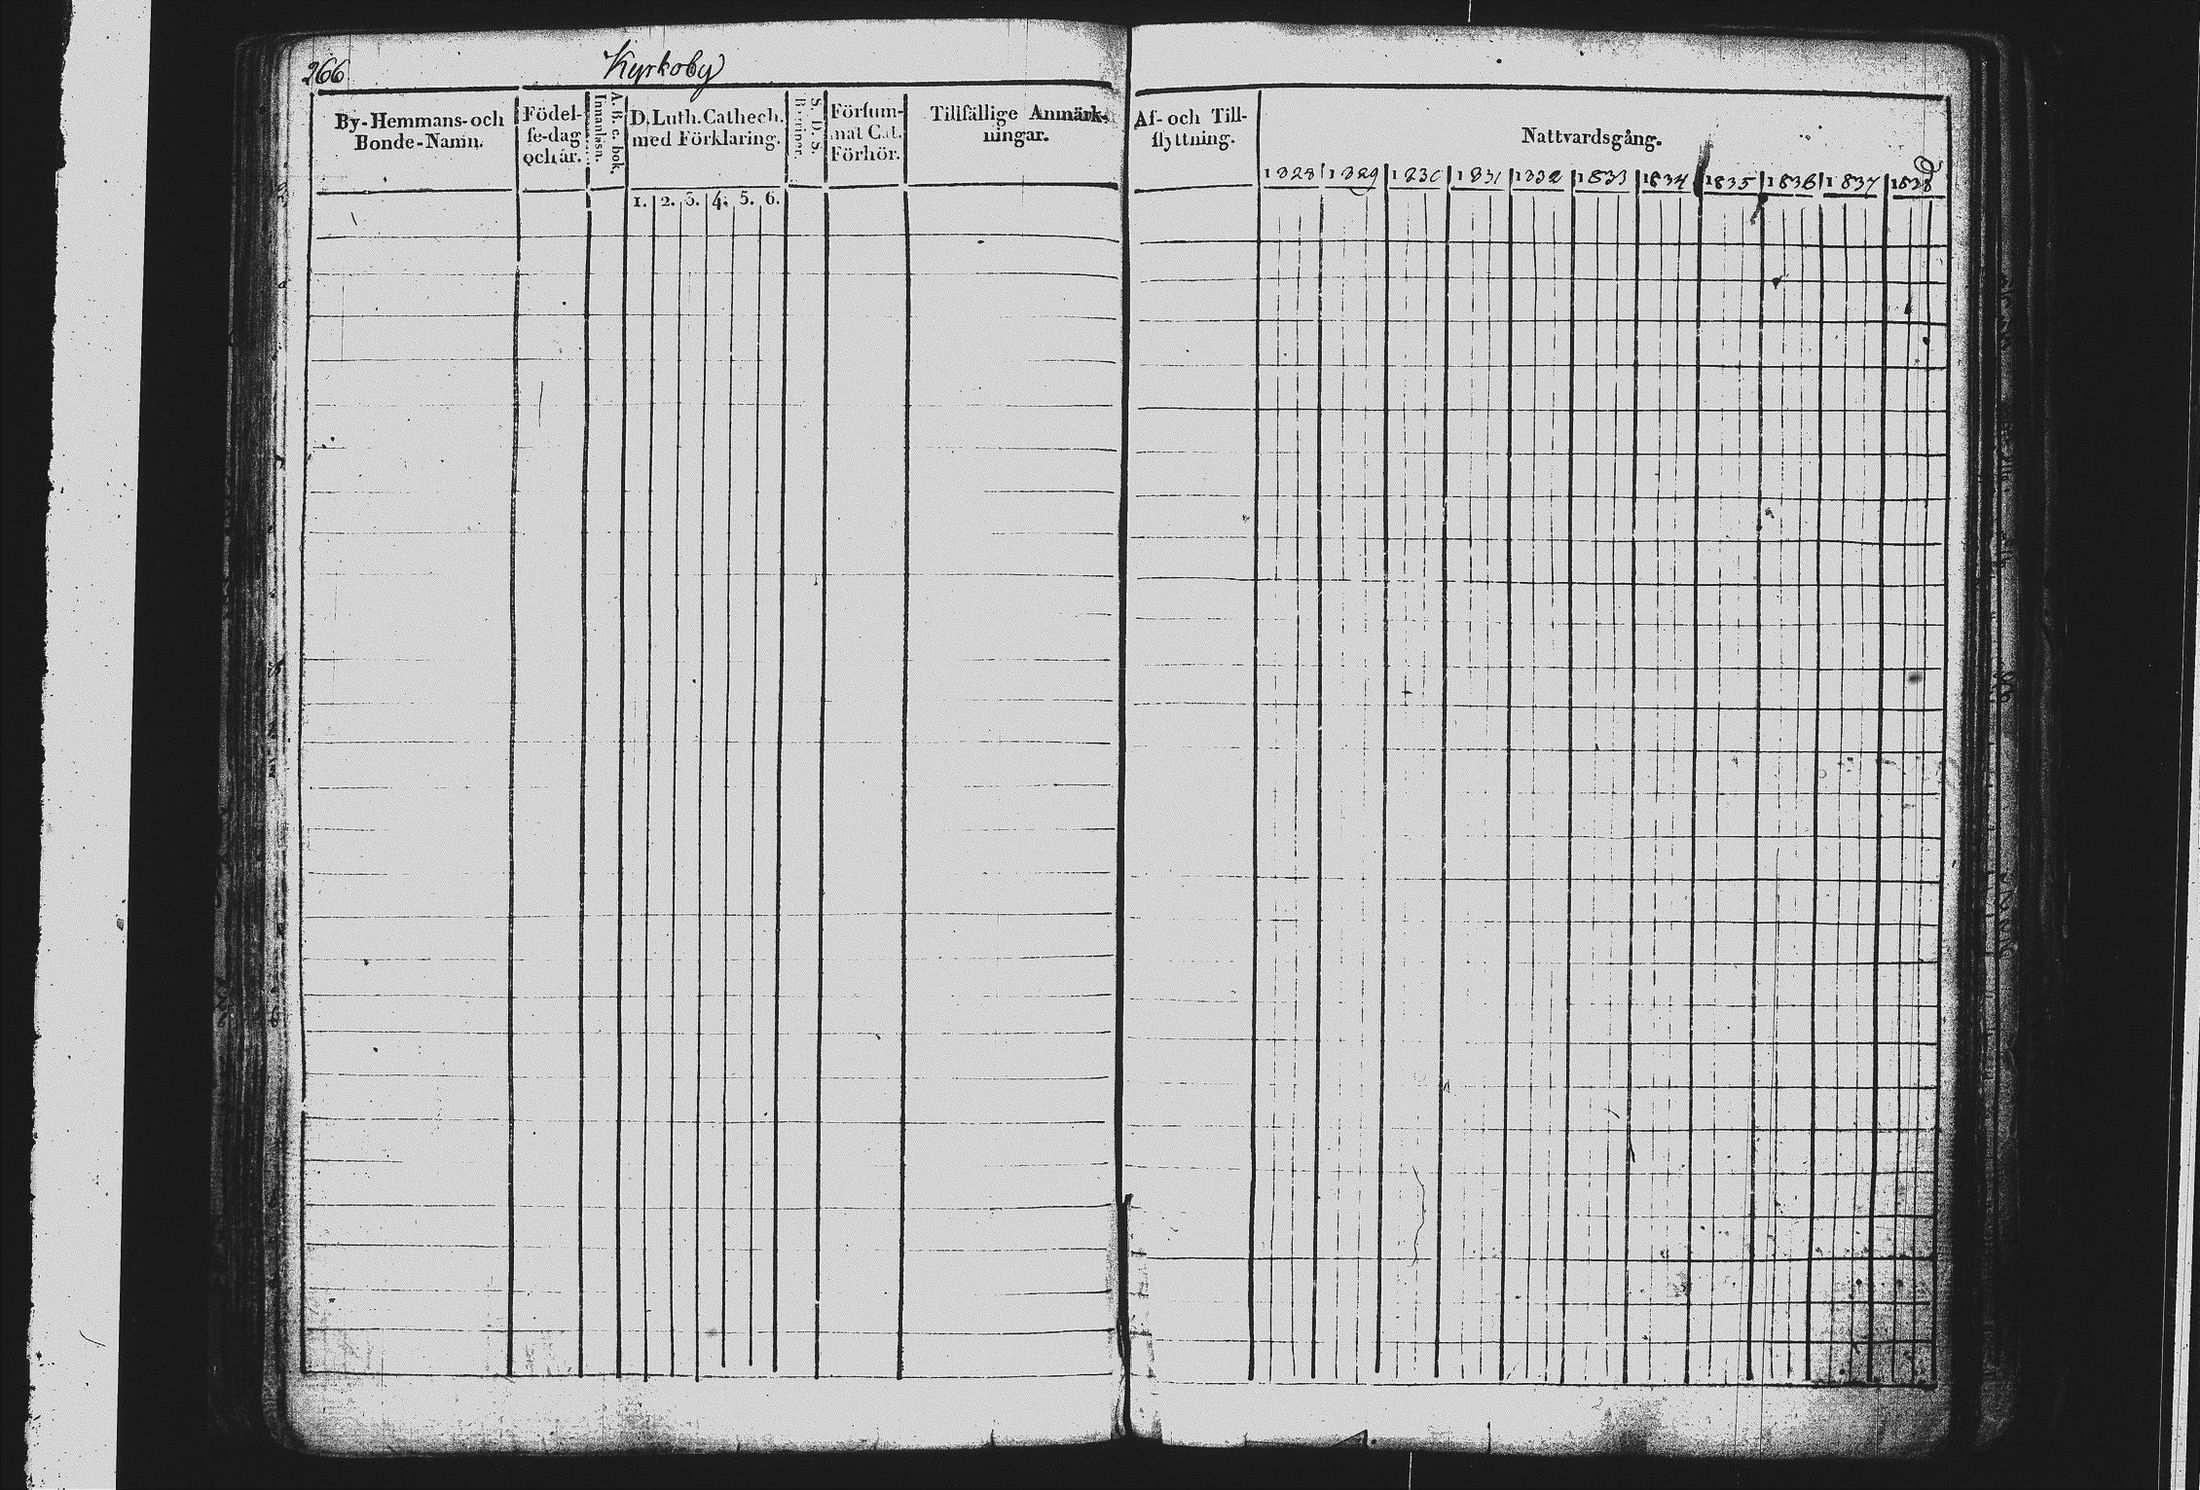 266
Kyrkoby
By-Hemmans-och
Bonde-Namn.
Födel-
se-dag
och år.
A. B. c. bok.
Innanläsn.
D. Luth. Cathech.
med Förklaring.
1. 2. 3. 4. 5. 6.
S. D. S.
Försum-
mat Cat.
Förhör.
Tillfällige Anmärk-
ningar.
Af- och Till-
flyttning.
Nattvardsgång.
1828 1829 1830 1831 1832 1833 1834 1835 1836 1837 1838